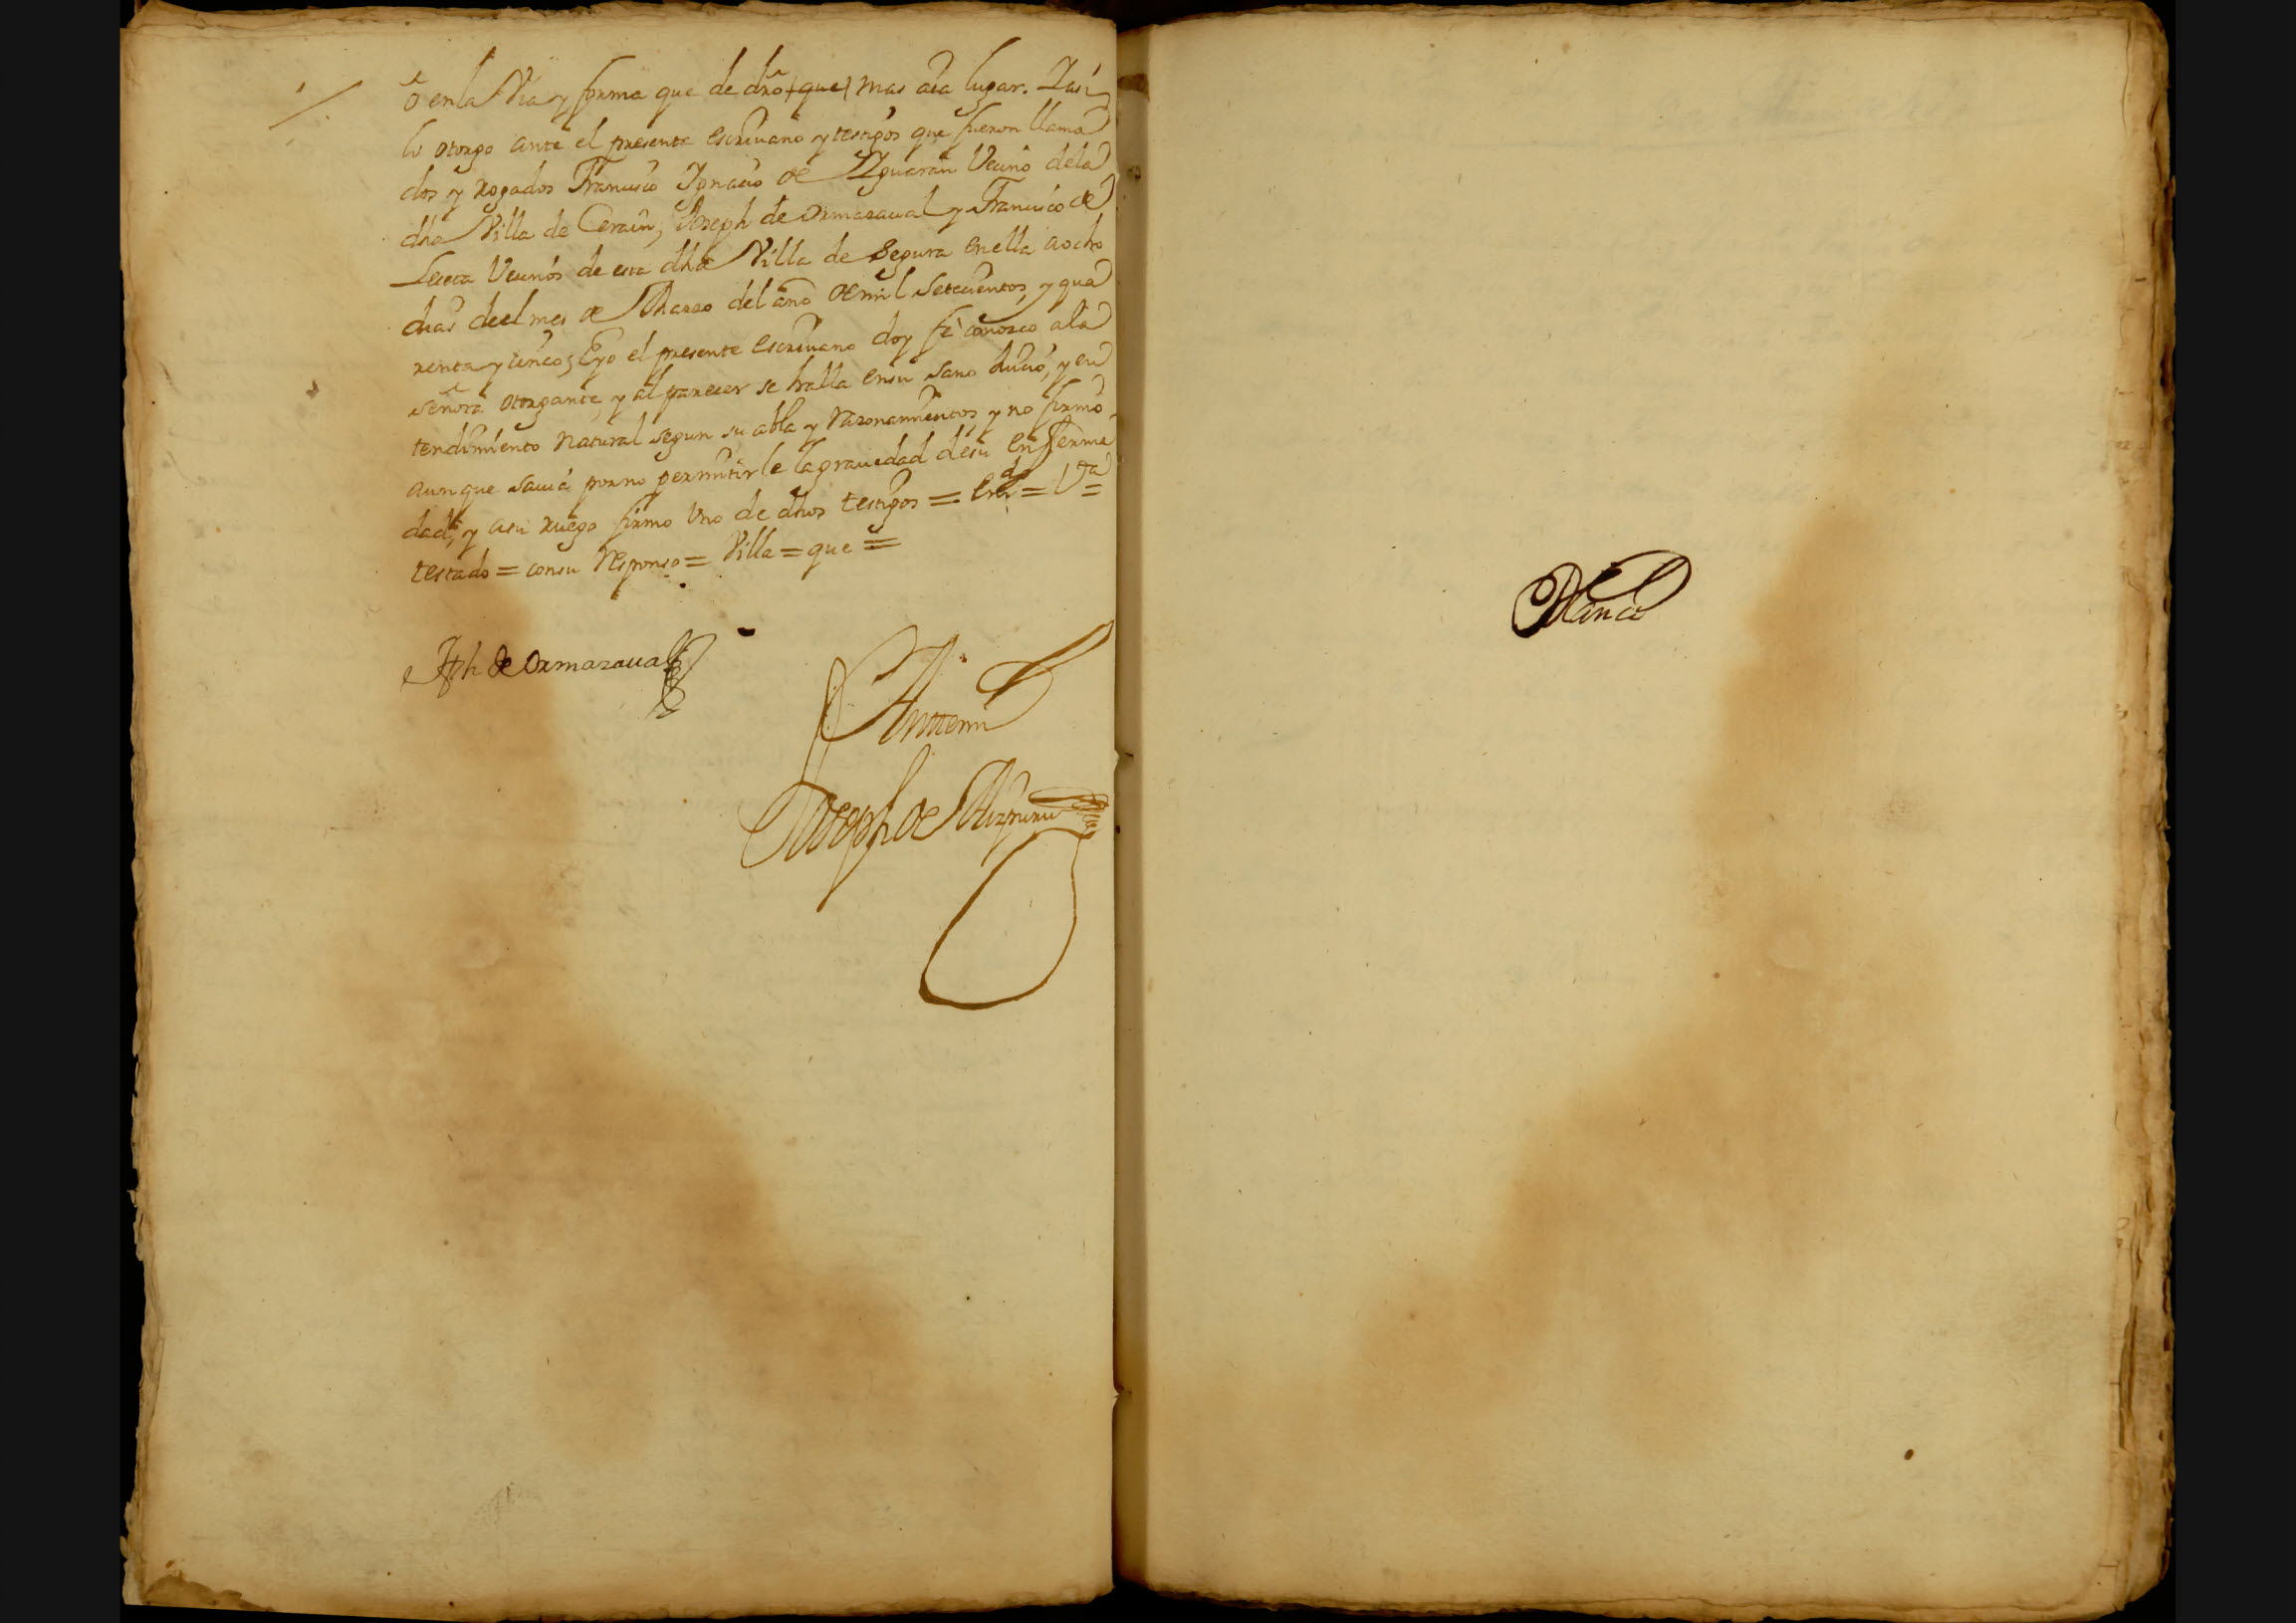 ô en la Via y forma que de dro (que) mas aia lugar. Y asi
lo otorgo ante el presente escriuano y testigos que fueron llama
dos y rogados Francisco Ygnacio de Yguarán Vecino dela
dha Villa de Cerain, Joseph de Ormazaual y Francisco de
Vecinos de esta dha Villa de Segura en ella a ocho
dias deel mes de Marzo del año de mil setecientos, y qua
renta y cinco; E yo el presente escriuano doy fè conozco a la
señora otorgante, y al parecer se halla en su sano Juicio, y en
tendimiento natural segun su abla y razonamientos, y no firmó
aunque sauia por no permitirle la grauedad de su enferma
dad, y a su ruego firmo Vno de dhos testigos =
testado = con su responso = Villa = que =
Jph de Ormazaual
Anttemi
Joseph de Aizpuru
Blanca